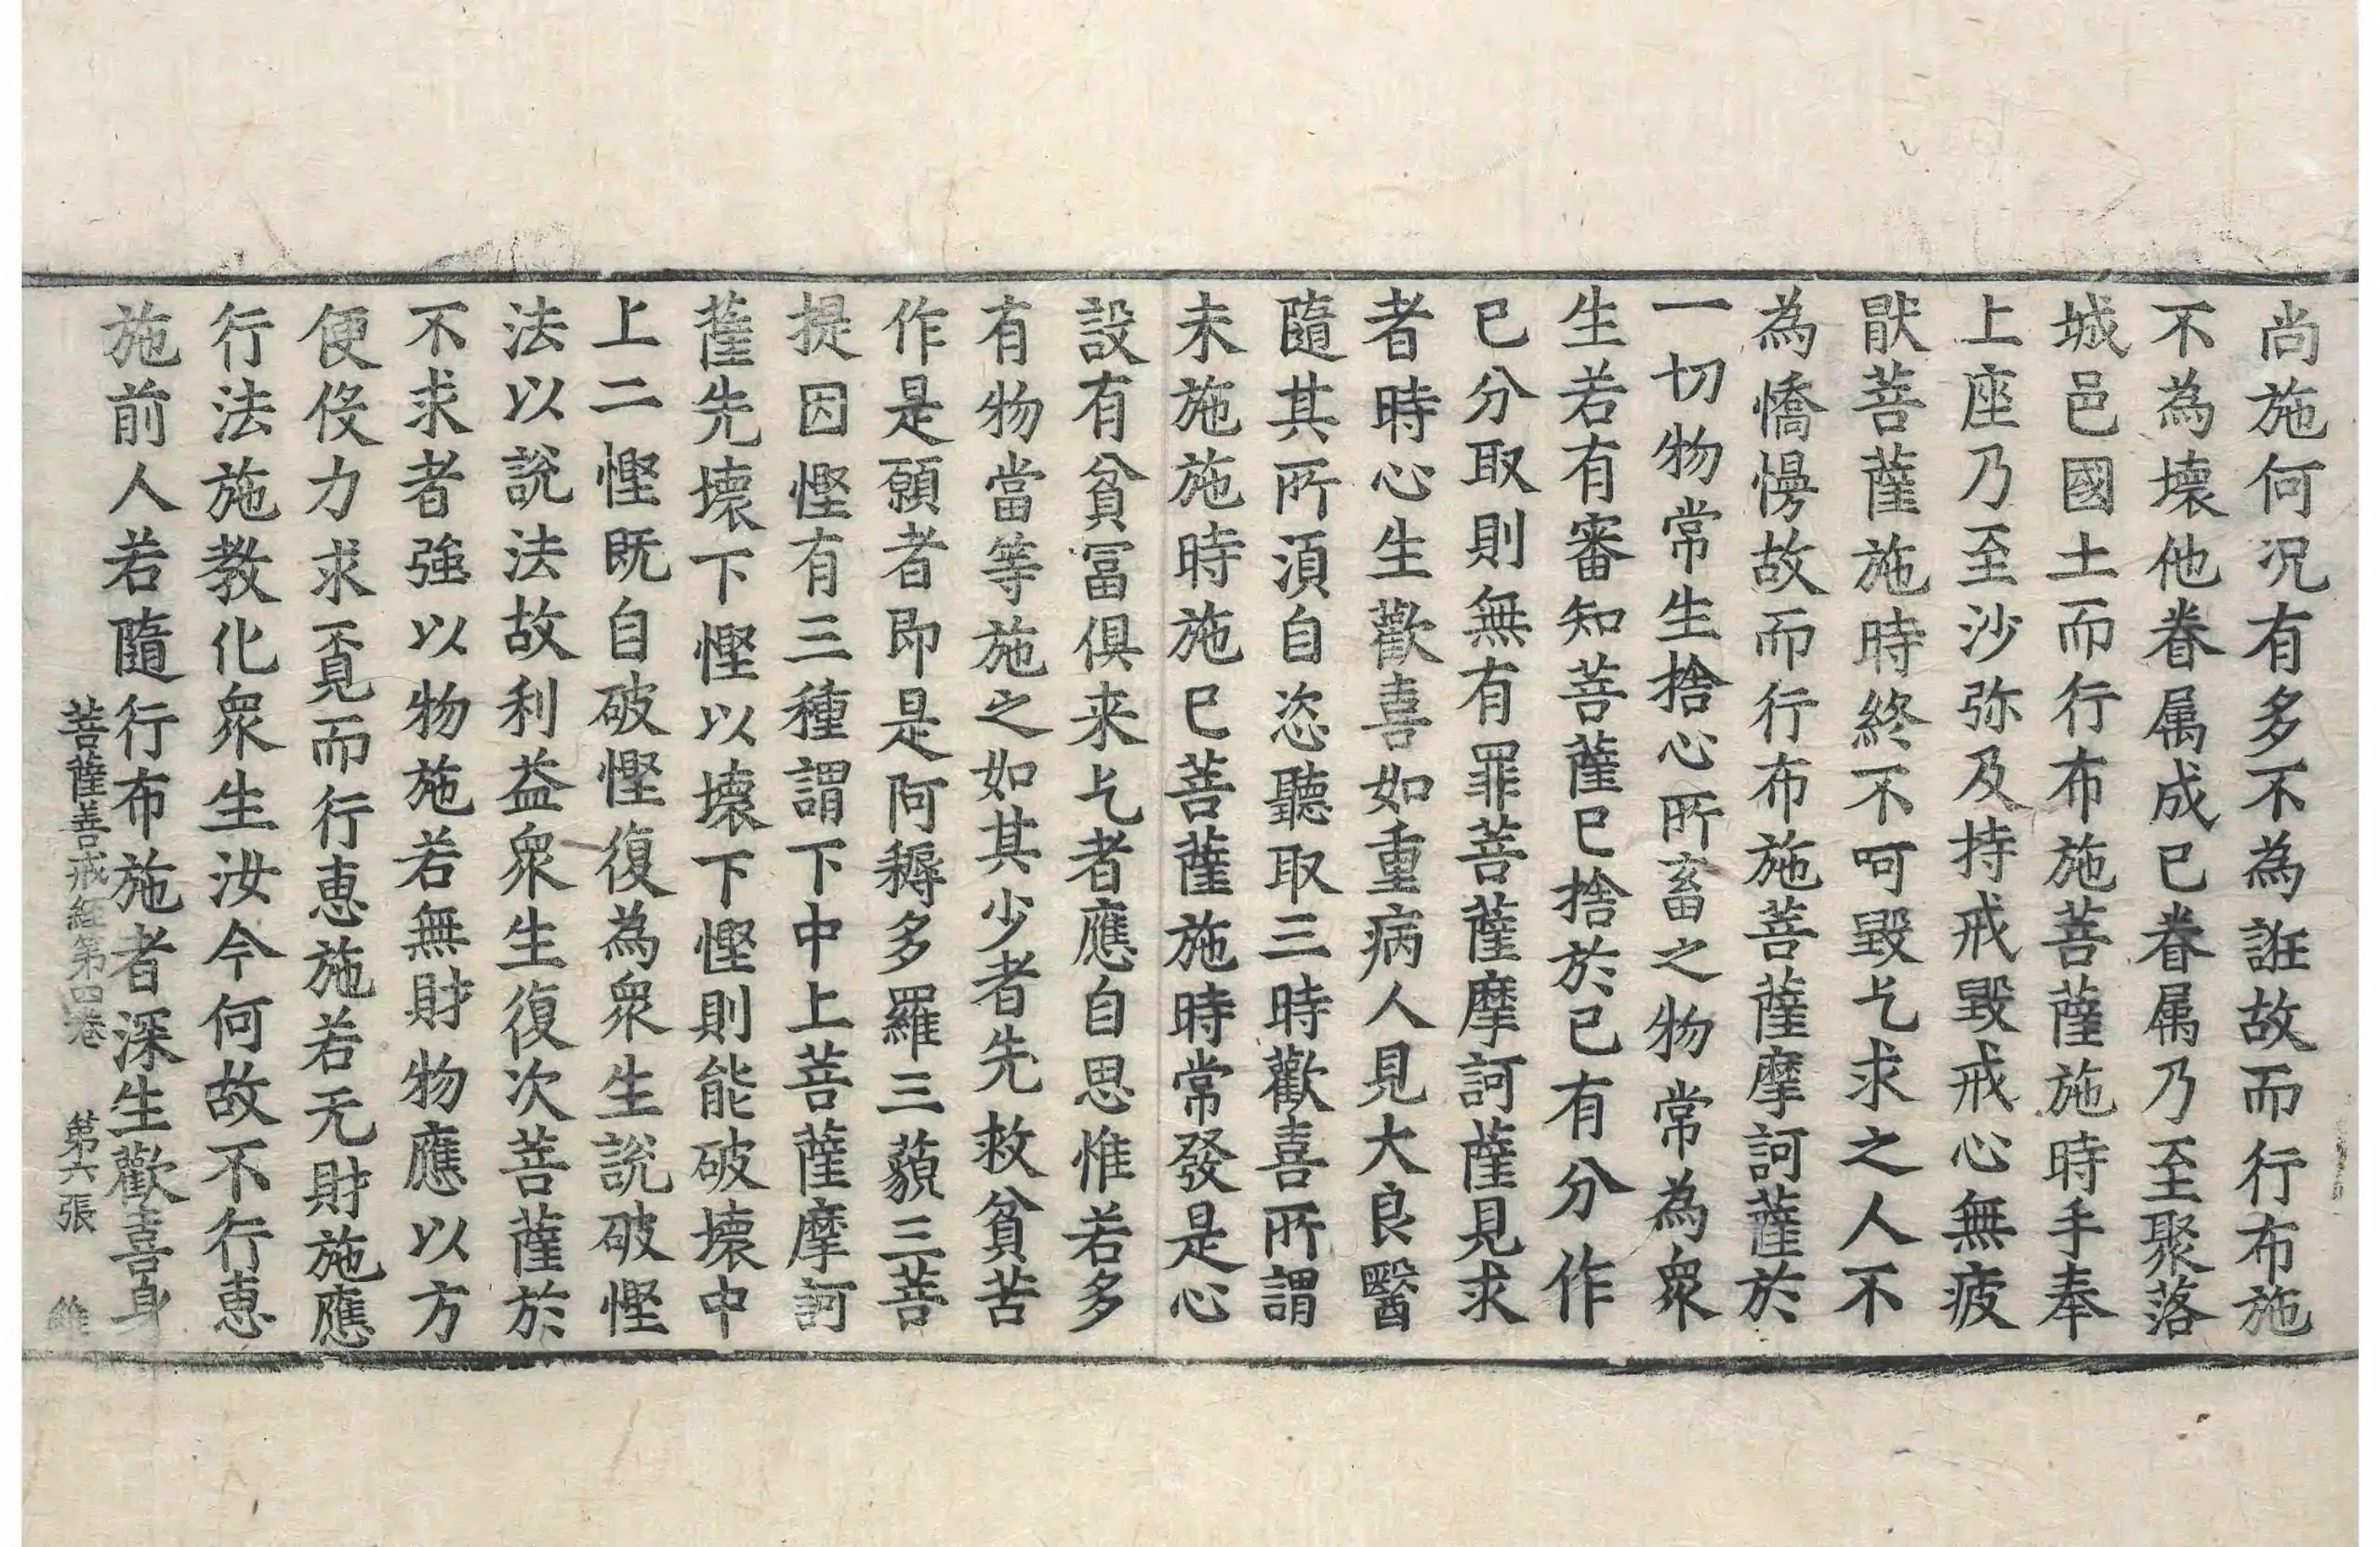 尚施何况有多不為誑故而行布施
不為壞他眷属成已眷属乃至聚落
城邑國土而行布施菩薩施時手奉
上座乃至沙弥及持戒毀戒心無疲
猒菩薩施時終不呵毀乞求之人不
為憍慢故而行布施菩薩摩訶薩於
一切物常生捨心所畜之物常為衆
生若有審知菩薩已捨於已有分作
已分取則無有罪菩薩摩訶薩見求
者時心生歡喜如重病人見大良醫
隨其所湏自恣聽取三時歡喜所謂
未施施時施已菩薩施時常發是心
設有貧冨俱来乞者應自思惟若多
有物當等施之如其少者先救貧苦
作是願者即是阿耨多羅三藐三菩
提因慳有三種謂下中上菩薩摩訶
薩先壞下慳以壞下慳則能破壞中
上二慳既自破慳復為衆生說破慳
法以說法故利益衆生復次菩薩於
不求者強以物施若無財物應以方
便伇力求覔而行惠施若无財施應
行法施教化衆生汝今何故不行惠
施前人若隨行布施者深生歡喜身
菩薩善戒經第四卷　第六張　維